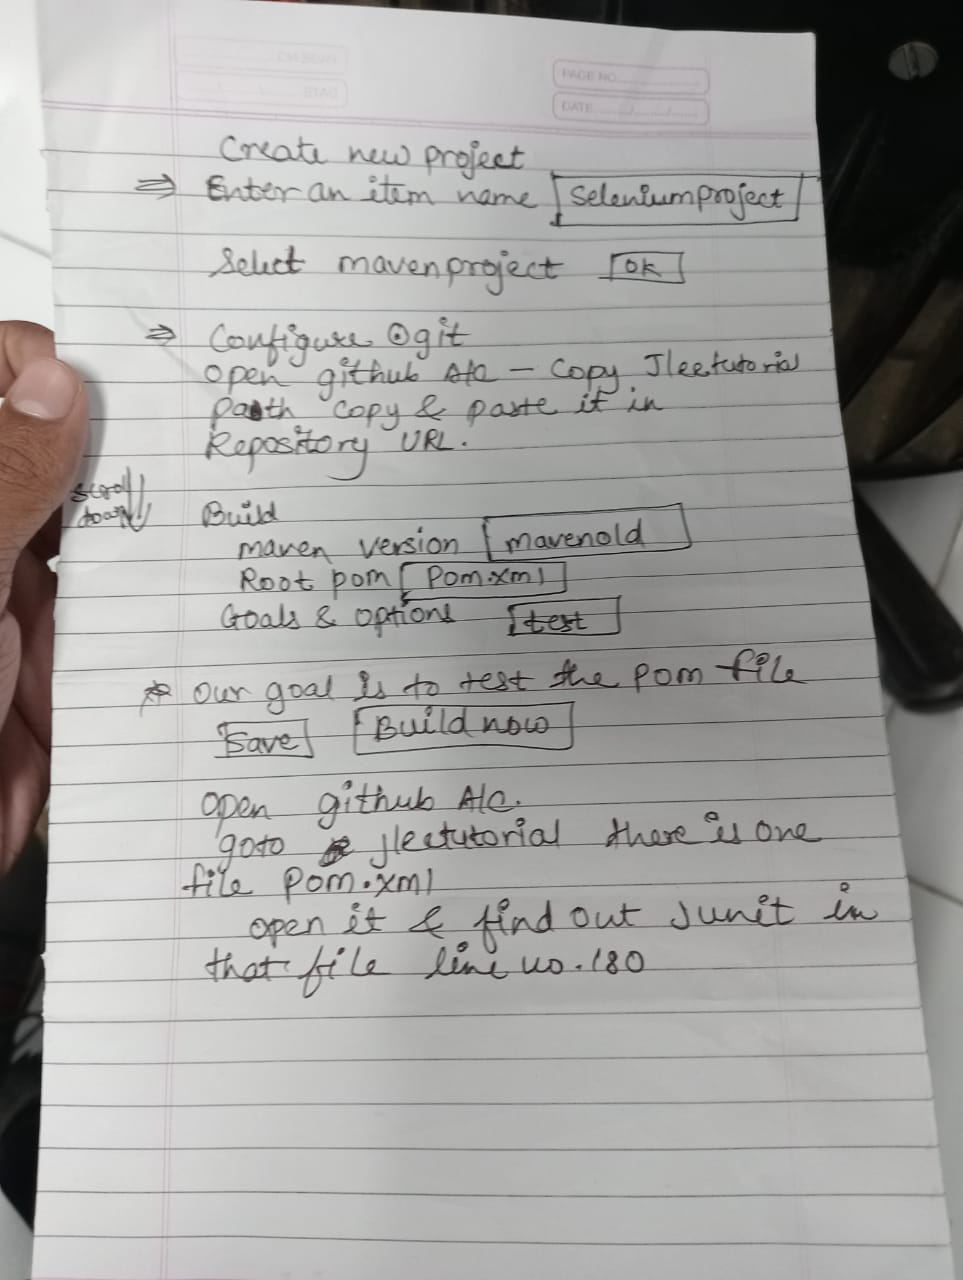 PAGE NO.
DATE
Create new project
⇒ Enter an item name [Seleniumproject]
Select mavenproject [OK]
⇒ Configure ⊙git
open github A/c - Copy Jleetutorial
Path copy & paste it in
Repository URL.
scroll
down
Build
maven version [mavenold]
Root pom [Pom.xml]
Goals & options [test]
* Our goal is to test the pom file
[Save] [Build now]
open github A/c.
goto jleetutorial there is one
file Pom.xml
open it & find out Junit in
that file line no. 180